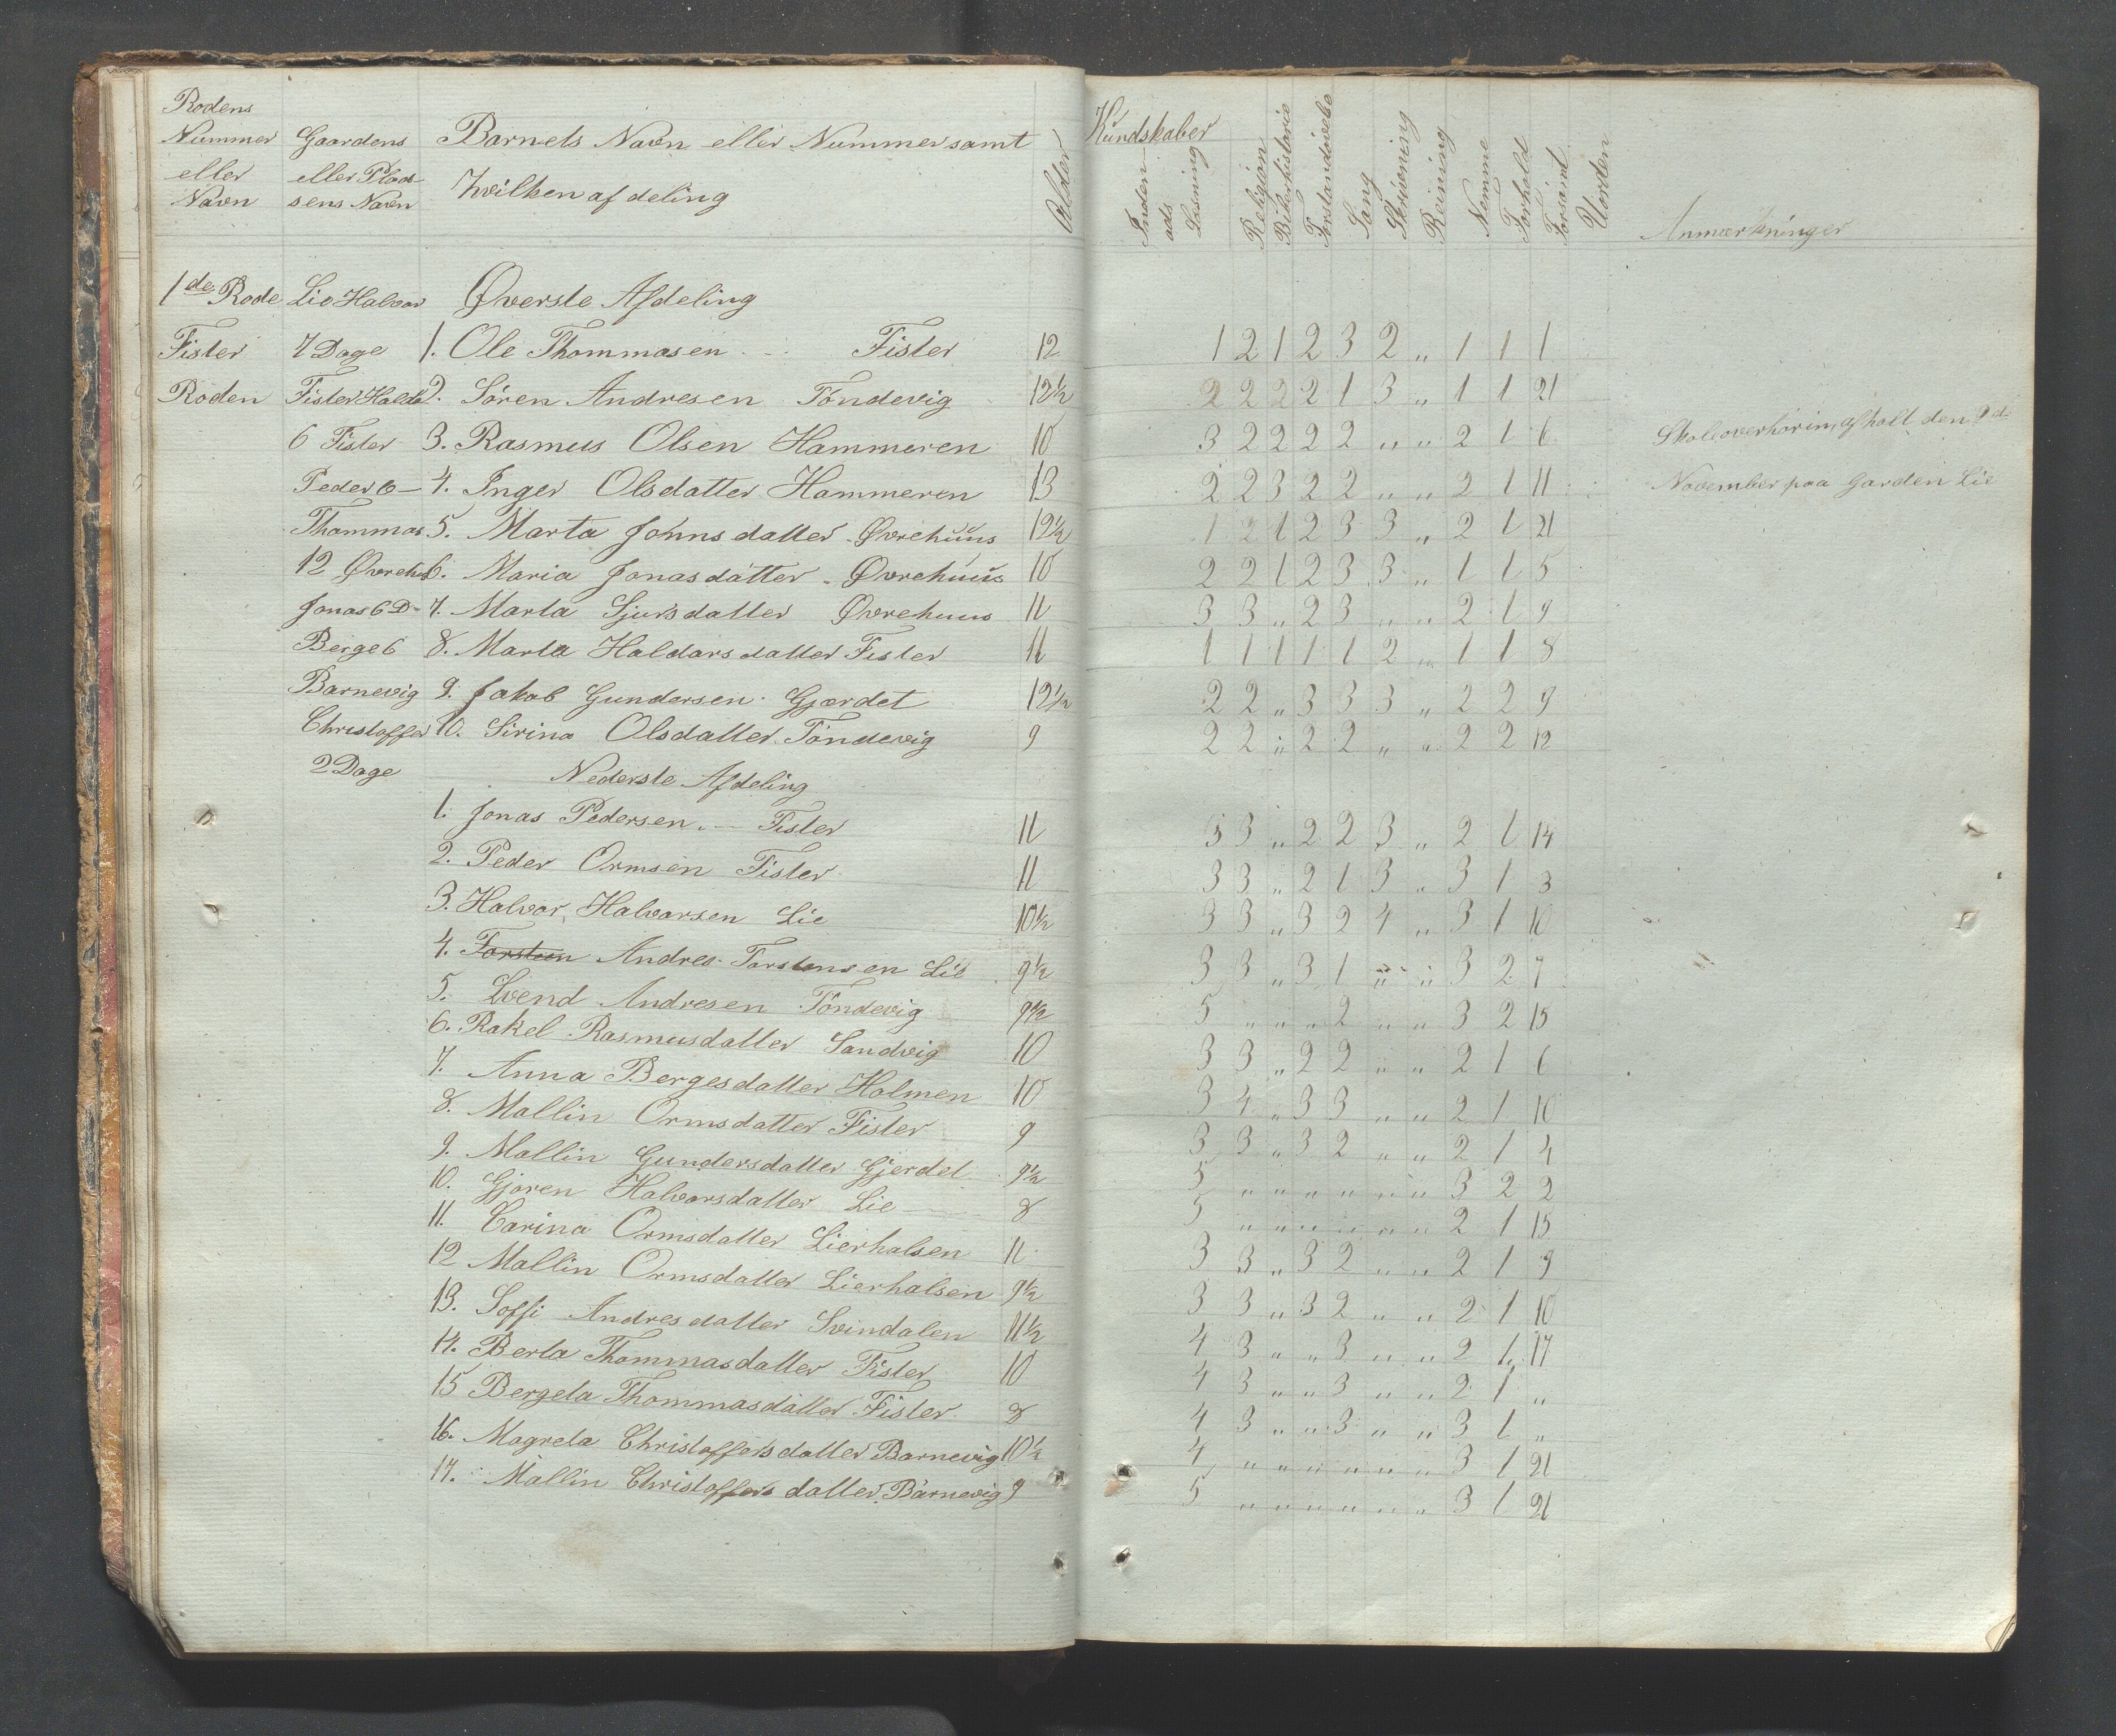 Rodens
Nummer
eller
Navn
Gaardens
eller Plad-
sens Navn
Barnets Navn eller Nummer samt
hvilken afdeling
Alder
Kundskaber
Inden-
ads
Læsning
Religion
Bibelhistorie
Forstandsøvelse
Sang
Skrivning
Regning
Nemme
Forhold
Forsømt
Uorden
Anmærkninger
1de Rode Lie Halvor Øverste Afdeling
Fister 7 Dage 1. Ole Thommasen Fister 12 1 2 1 2 3 2 „ 1 1 1
Roden Fister Haldo 2. Sören Andresen Töndevig 12½ 2 2 2 2 1 3 „ 1 1 21
6 Fister 3. Rasmus Olsen Hammeren 10 3 2 2 2 2 „ „ 2 1 6 Skoleoverhörin, afholt den 9de
Peder 6 – 4. Inger Olsdatter Hammeren 13 2 2 3 2 2 „ „ 2 1 11 November paa Garden Lie
Thammas 5. Marta Johnsdatter Øvrehuus 12½ 1 2 1 2 3 3 „ 2 1 21
12 Øvrehus 6. Maria Jonasdatter Øvrehuus 10 2 2 1 2 3 3 „ 1 1 5
Jonas 6 D- 7. Marta Sjursdatter Øvrehuus 11 3 3 „ 2 3 „ „ 2 1 9
Berge 6 8. Marta Haldorsdatter Fister 11 1 1 1 1 1 2 „ 1 1 8
Barnevig 9. Jakob Gundersen Gjærdet 12½ 2 2 „ 3 3 3 „ 2 2 9
Christoffer 10. Sirina Olsdatter Töndevig 9 2 2 „ 2 2 „ „ 2 2 12
2 Dage Nederste Afdeling
1. Jonas Pedersen Fister 11 3 3 „ 2 2 3 „ 2 1 14
2. Peder Ormsen Fister 11 3 3 „ 2 1 3 „ 3 1 3
3. Halvor Halvorsen Lie 10½ 3 3 „ 3 2 4 „ 3 1 10
4. Torsten Andres Torstensen Lie 9½ 3 3 „ 3 1 „ „ 3 2 7
5. Svend Andresen Töndevig 9½ 5 „ „ „ 2 „ „ 3 2 15
6. Rakel Rasmusdatter Sandvig 10 3 3 „ 2 2 „ „ 2 1 6
7. Anna Bergesdatter Holmen 10 3 4 „ 3 3 „ „ 2 1 10
8. Mallin Ormsdatter Fister 9 3 3 „ 3 2 „ „ 2 1 4
9. Mallin Gundersdatter Gjerdet 9½ 5 „ „ „ „ „ „ 3 2 2
10. Gjoren Halvorsdatter Lie 8 5 „ „ „ „ „ „ 2 1 15
11. Carina Ormsdatter Lierhalsen 11 3 3 „ 3 2 „ „ 2 1 9
12 Mallin Ormsdatter Lierhalsen 9½ 3 3 „ 3 2 „ „ 2 1 10
13. Soffi Andresdatter Svindalen 11½ 4 3 „ „ 3 „ „ 2 1 17
14. Berta Thommasdatter Fister 10 4 3 „ „ 3 „ „ 2 1 „
15 Bergeta Thommasdatter Fister 8 4 3 „ „ 3 „ „ 3 1 „
16. Magreta Christoffersdatter Barnevig 10½ 4 „ „ „ „ „ „ 3 1 21
17. Mallin Christoffers datter Barnevig 9 5 „ „ „ „ „ „ 3 1 21